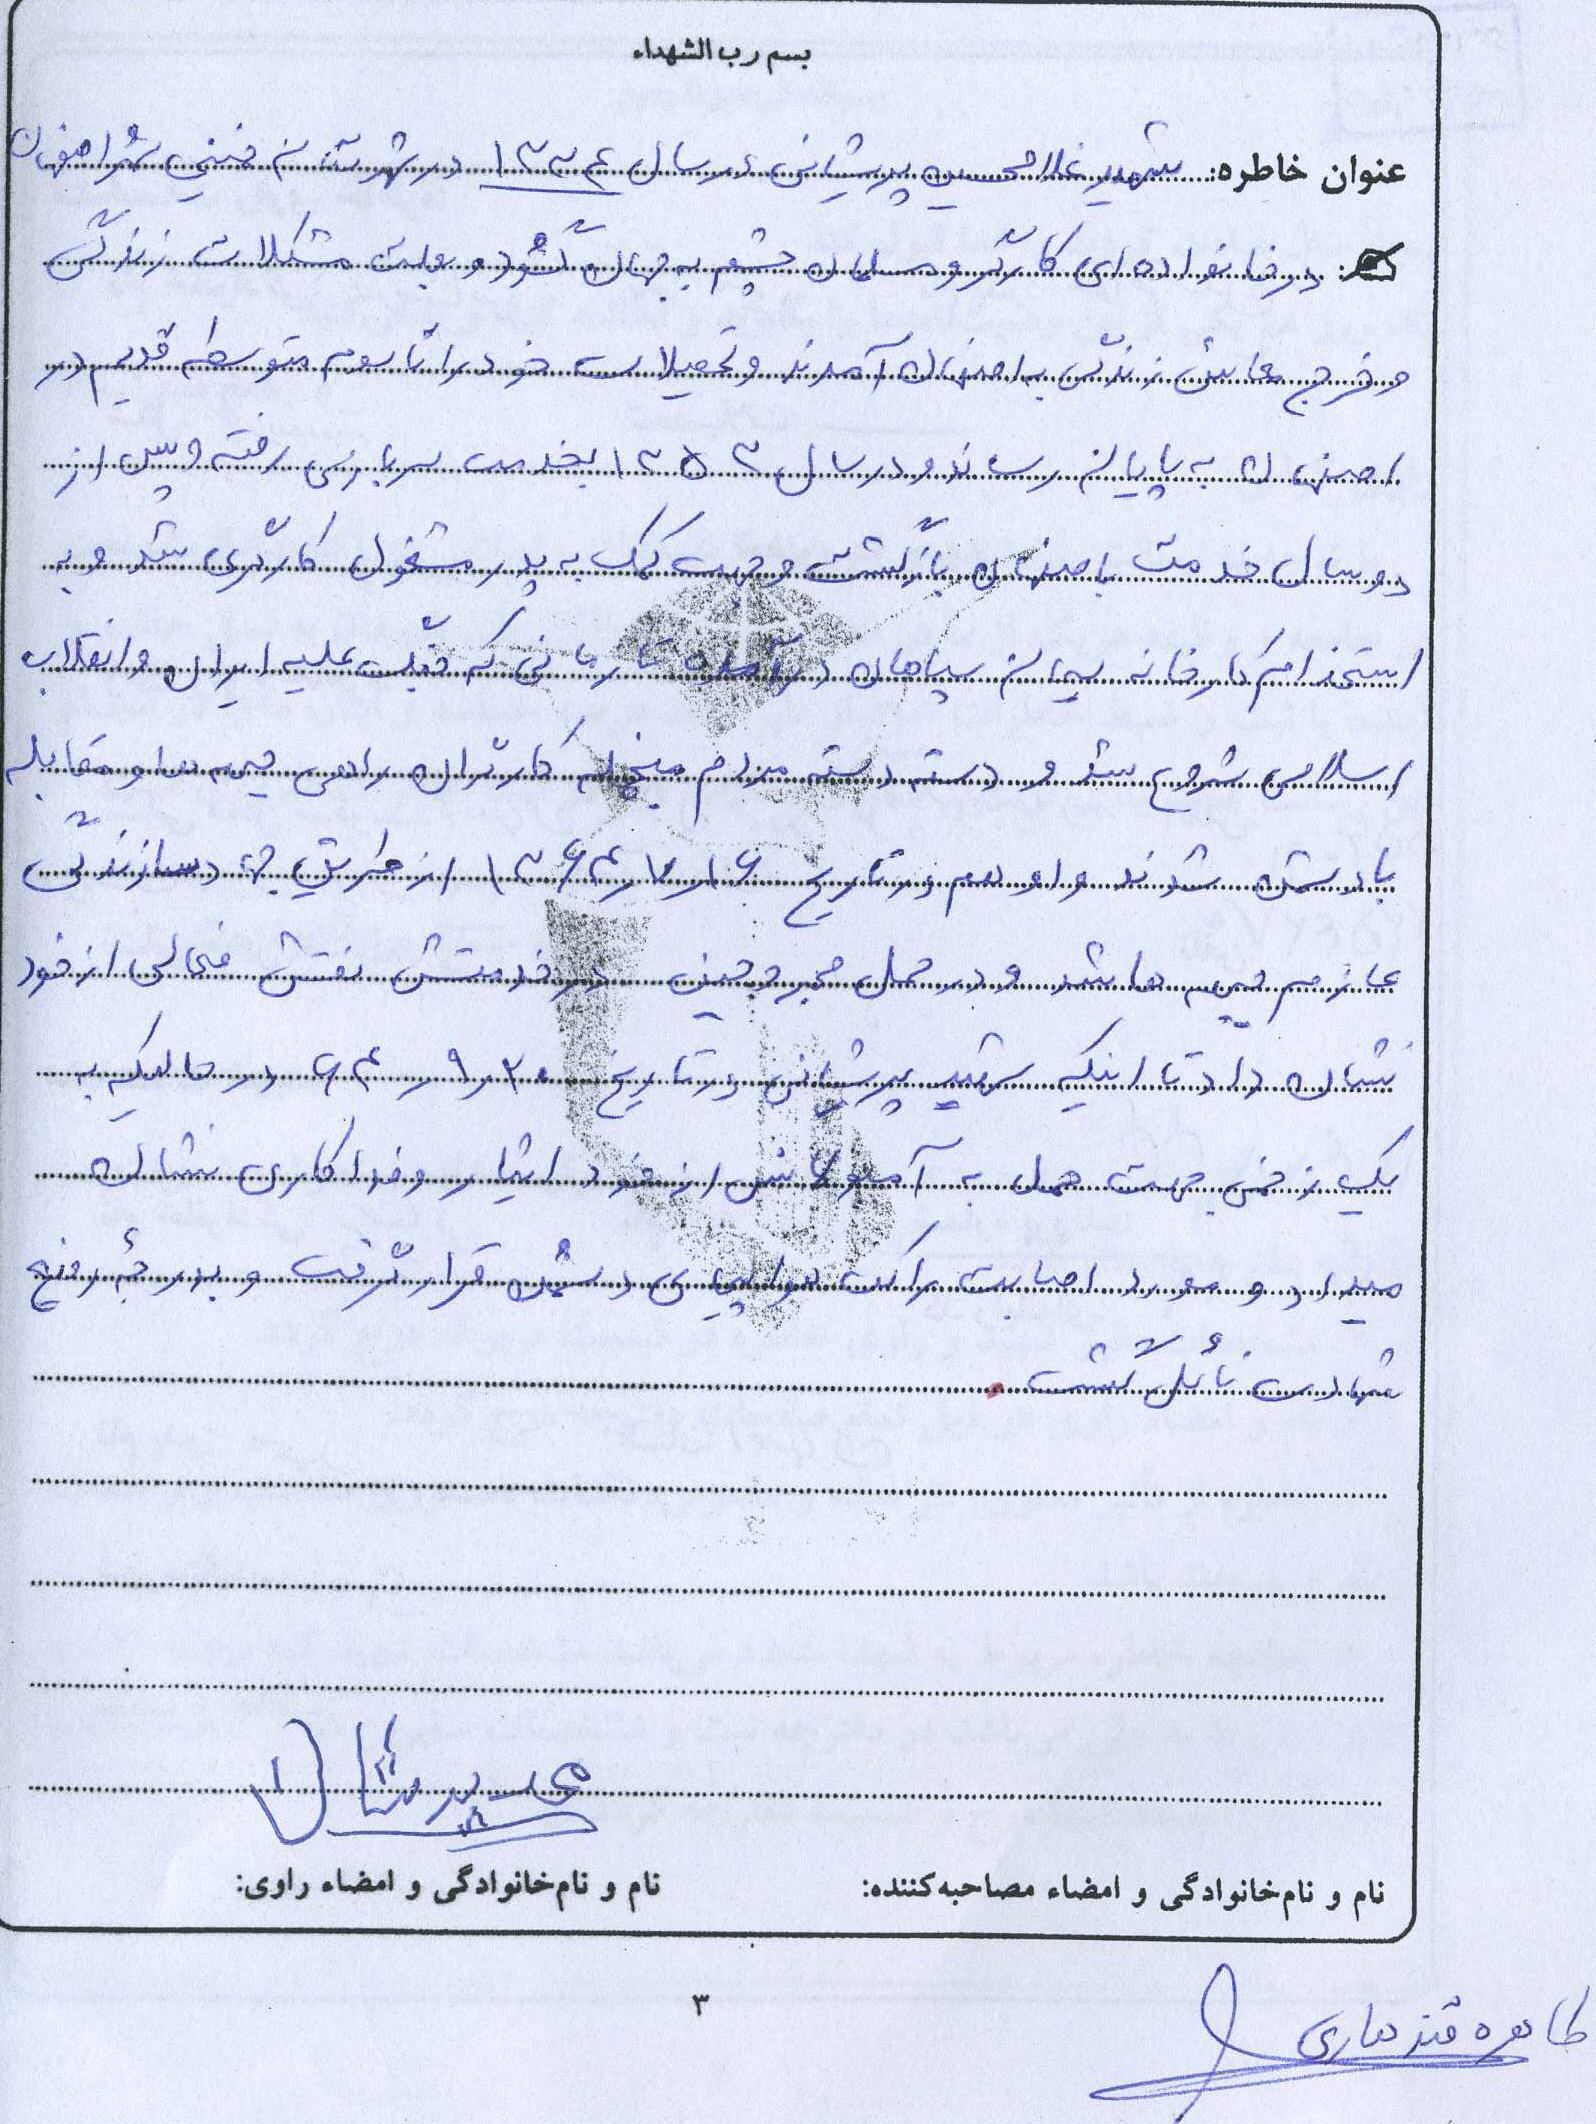 بسم رب الشهداء
عنوان خاطره: شهید غلامحسین پریشانی در سال ۱۳۳۴ در شهرستان خمینی شهر اصفهان
در خانواده‌ای کارگر و مسلمان چشم به جهان گشود و بعلت مشکلات زندگی
و خرج معاش زندگی به اصفهان آمدند و تحصیلات خود را تا سوم متوسطه قدیم در
اصفهان به پایان رساند و در سال ۱۳۵۳ بخدمت سربازی رفته و پس از
دو سال خدمت باصفهان بازگشت و جهت کمک به پدر مشغول کارگری شد و به
استخدام کارخانه سیمان سپاهان درآمده تا زمانی که جنگ علیه ایران و انقلاب
اسلامی شروع شد و دسته دسته مردم منجمله کارگران راهی جبهه‌ها و مقابله
با دشمن شدند و او هم در تاریخ ۱۶ر۷ر۱۳۶۴ از طریق جهاد سازندگی
عازم جبهه ها شد و در حمل مجروحین در خدمتش نقش فعالی از خود
نشان داد تا اینکه شهید پریشانی در تاریخ ۲۰ر۹ر۶۴ در حالیکه به
یک زخمی جهت حمل به آمبولانس از خود ایثار و فداکاری نشان
میداد و مورد اصابت راکت هواپیمای دشمن قرار گرفت و بدرجهٔ رفیع
شهادت نائل گشت.
پریشانی
نام و نام‌خانوادگی و امضاء مصاحبه‌کننده: نام و نام‌خانوادگی و امضاء راوی:
۳
طاهره قندهاری